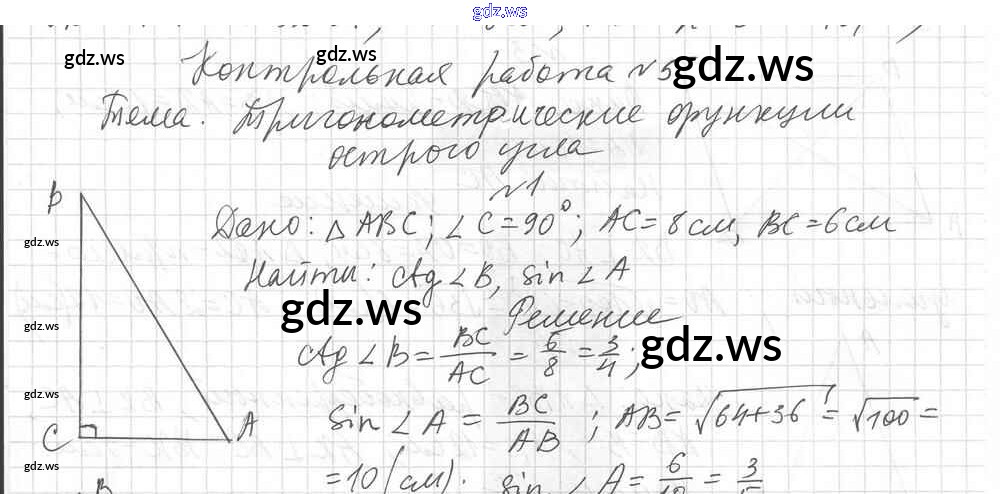 gdz.ws
Контрольная работа №5
gdz.ws gdz.ws
Тема. Тригонометрические функции
острого угла
№1
B
Дано: △ABC; ∠C=90°; AC=8см, BC=6см
gdz.ws
Найти: ctg∠B, sin∠A
gdz.ws
Решение
gdz.ws
ctg∠B = BC/AC = 6/8 = 3/4;
gdz.ws
gdz.ws
sin∠A = BC/AB; AB = √64+36 = √100 =
C A
gdz.ws
=10(см). sin∠A = 6/10 = 3/5
B